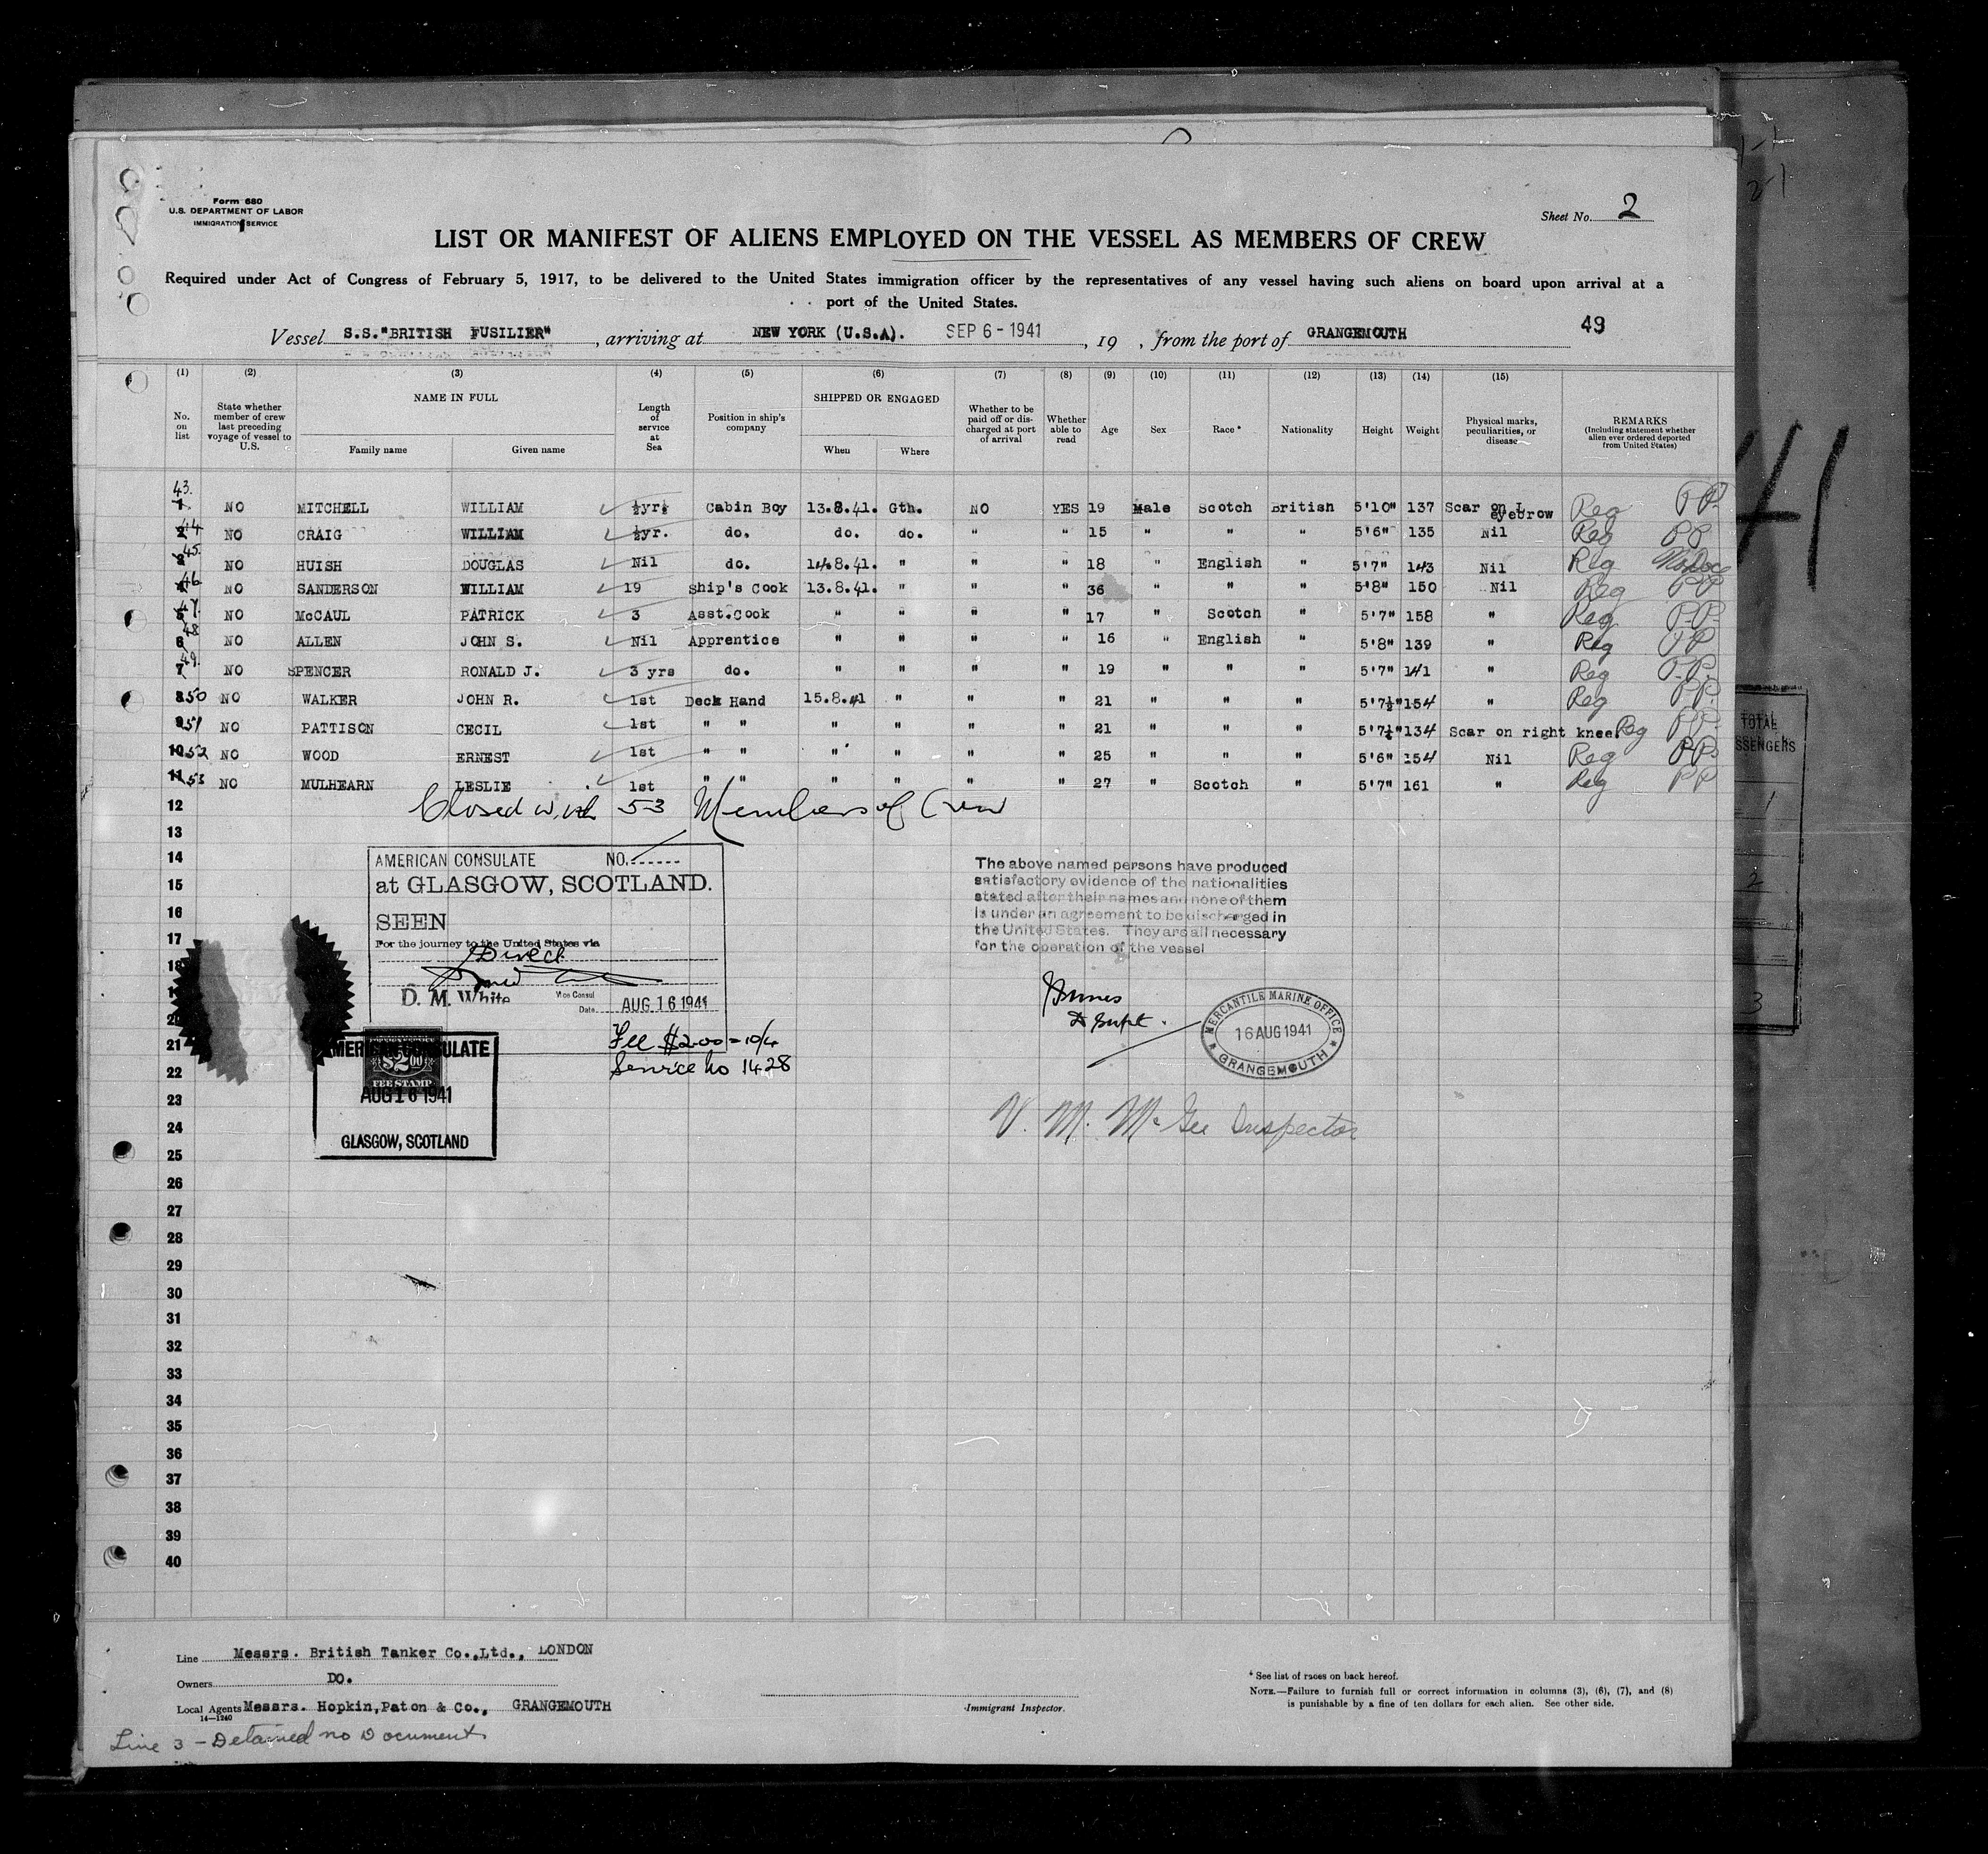 Form 680
U.S. DEPARTMENT OF LABOR
IMMIGRATION SERVICE
Sheet No. 2
LIST OR MANIFEST OF ALIENS EMPLOYED ON THE VESSEL AS MEMBERS OF CREW
Required under Act of Congress of February 5, 1917, to be delivered to the United States immigration officer by the representatives of any vessel having such aliens on board upon arrival at a
port of the United States.
Vessel S.S. "BRITISH FUSILIER", arriving at NEW YORK (U.S.A). SEP 6 - 1941, 19 , from the port of GRANGEMOUTH 49
(1) (2) (3) (4) (5) (6) (7) (8) (9) (10) (11) (12) (13) (14) (15)
No. on list State whether member of crew last preceding voyage of vessel to U.S. NAME IN FULL Family name Given name Length of service at Sea Position in ship's company SHIPPED OR ENGAGED When Where Whether to be paid off or discharged at port of arrival Whether able to read Age Sex Race* Nationality Height Weight Physical marks, peculiarities, or disease REMARKS (Including statement whether alien ever ordered deported from United States)
43. 1 NO MITCHELL WILLIAM ½yr½ Cabin Boy 13.8.41. Gth. NO YES 19 Male Scotch British 5'10" 137 Scar on L eyebrow Reg P.P.
2 44 NO CRAIG WILLIAM ½yr. do. do. do. " " 15 " " " 5'6" 135 Nil Reg PP
3 45. NO HUISH DOUGLAS Nil do. 14.8.41. " " " 18 " English " 5'7" 143 Nil Reg No Doc
4 46 NO SANDERSON WILLIAM 19 Ship's Cook 13.8.41. " " " 36 " " " 5'8" 150 Nil Reg PP
5 47. NO McCAUL PATRICK 3 Asst.Cook " " " " 17 " Scotch " 5'7" 158 " Reg. P.P.
6 48 NO ALLEN JOHN S. Nil Apprentice " " " " 16 " English " 5'8" 139 " Reg PP
7 49. NO SPENCER RONALD J. 3 yrs do. " " " " 19 " " " 5'7" 141 " Reg P.P.
8 50 NO WALKER JOHN R. 1st Deck Hand 15.8.41 " " " 21 " " " 5'7½" 154 " Reg P.P.
9 51 NO PATTISON CECIL 1st " " " " " " 21 " " " 5'7½" 134 Scar on right knee Reg PP
10 52 NO WOOD ERNEST 1st " " " " " " 25 " " " 5'6" 154 Nil Reg P.P.
11 53 NO MULHEARN LESLIE 1st " " " " " " 27 " Scotch " 5'7" 161 " Reg PP
12 Closed with 53 Members of Crew
13
14
15
16
17
18
19
20
21
22
23
24
25
26
27
28
29
30
31
32
33
34
35
36
37
38
39
40
AMERICAN CONSULATE NO.
at GLASGOW, SCOTLAND.
SEEN
For the journey to the United States via
Direct
D. M. White Vice Consul
Date AUG. 16 1941
Fee $2.00 = 10/4
Service No 1428
AMERICAN CONSULATE
$2.00
FEE STAMP
AUG 16 1941
GLASGOW, SCOTLAND
The above named persons have produced
satisfactory evidence of the nationalities
stated after their names and none of them
is under an agreement to be discharged in
the United States. They are all necessary
for the operation of the vessel
D Supt.
MERCANTILE MARINE OFFICE
16 AUG 1941
GRANGEMOUTH
V. M. McGee Inspector
Line Messrs. British Tanker Co.,Ltd., LONDON
Owners DO.
Local Agents Messrs. Hopkin,Paton & Co., GRANGEMOUTH
14—1240
Line 3 - Detained no Document
Immigrant Inspector.
* See list of races on back hereof.
NOTE.—Failure to furnish full or correct information in columns (3), (6), (7), and (8)
is punishable by a fine of ten dollars for each alien. See other side.
41
TOTAL
1
2
3